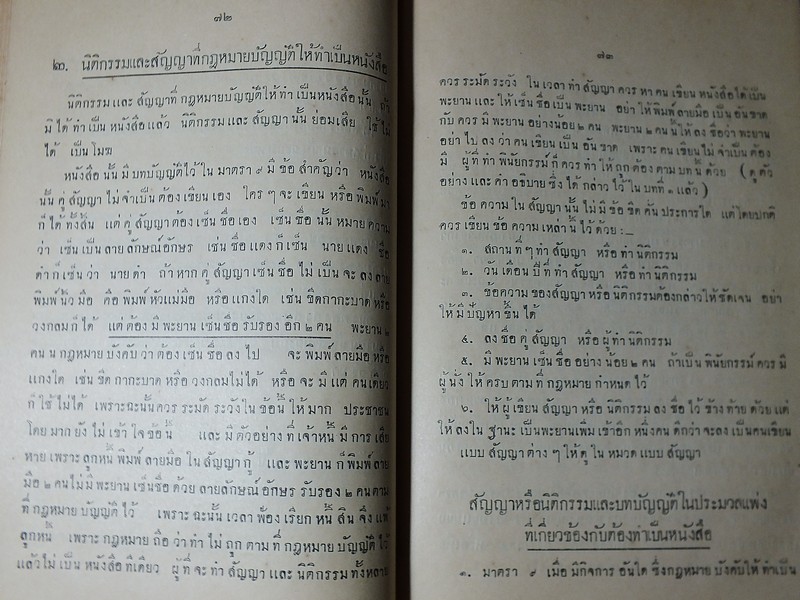 ๗๒
๒. นิติกรรมและสัญญาที่กฎหมายบัญญัติให้ทำเป็นหนังสือ
นิติกรรม และ สัญญาที่ กฎหมายบัญญัติให้ทำ เป็นหนังสือ นั้น ถ้า
มิ ได้ ทำเป็น หนังสือ แล้ว นิติกรรม และ สัญญา นั้น ย่อมเสีย ใช้ไม่
ได้ เป็น โมฆ
หนังสือ นั้น มี บทบัญญัติไว้ ใน มาตรา ๙ มี ข้อ สำคัญ ว่า หนังสือ
นั้น คู่ สัญญา ไม่ จำเป็น ต้อง เขียน เอง ใคร ๆ จะ เขียน หรือ พิมพ์ มา
ก็ ได้ ทั้งสิ้น แต่ คู่ สัญญาต้อง เซ็น ชื่อ เอง เซ็น ชื่อ นั้น หมาย ความ
ว่า เซ็น เป็น ลาย ลักษณ์อักษร เช่น ชื่อ แดง ก็ เซ็น นาย แดง ชื่อ
ดำ ก็ เซ็น ว่า นาย ดำ ถ้า หาก คู่ สัญญา เซ็น ชื่อ ไม่ เป็น จะ ลง ลาย
พิมพ์ นิ้ว มือ คือ พิมพ์ หัวแม่มือ หรือ แกงได เช่น ขีดกากะบาด หรือ
วงกลม ก็ ได้ แต่ ต้อง มี พะยาน เซ็น ชื่อ รับรอง อีก ๒ คน พะยาน ๒
คน น กฎหมาย บังคับ ว่า ต้อง เซ็น ชื่อ ลง ไป จะ พิมพ์ ลายมือ หรือ
แกงได เช่น ขีด กากะบาด หรือ วงกลมไม่ได้ หรือ จะ มี แต่ คน เดียว
ก็ ใช้ ไม่ ได้ เพราะฉะนั้น ควร ระมัด ระวัง ใน ข้อนี้ ให้ มาก ประชาชน
โดย มาก ยัง ไม่ เข้า ใจ ข้อ นี้ และ มี ตัวอย่าง ที่ เจ้าหนี้ มี การ เสีย
หาย เพราะ ลูกหนี้ พิมพ์ ลายมือ ใน สัญญา กู้ และ พะยาน ก็ พิมพ์ ลาย
มือ ๒ คน ไม่ มี พะยาน เซ็นชื่อ ด้วย ลายลักษณ์ อักษร รับรอง ๒ คน ตาม
ที่ กฎหมาย บัญญัติ ไว้ เพราะ ฉะนั้น เวลา ฟ้อง เรียก หนี้ สิน จึง แพ้
ลูกหนี้ เพราะ กฎหมาย ถือ ว่า ทำ ไม่ ถูก ตาม ที่ กฎหมาย บัญญัติ ไว้
แล้ว ไม่ เป็น หนังสือ ทีเดียว ผู้ ที่ จะ ทำ สัญญา และ นิติกรรม ทั้งหลาย
๗๓
ควร ระมัด ระวัง ใน เวลา ทำ สัญญา ควร หา คน เขียน หนังสือ ได้ เป็น
พะยาน และ ให้ เซ็น ชื่อ เป็น พะยาน อย่า ให้พิมพ์ ลายมือ เป็น อันขาด
กับ ควร มี พะยาน อย่างน้อย ๒ คน พะยาน ๒ คน นี้ ให้ ลง ชื่อ ว่า พะยาน
อย่า ไป ลง ว่า คน เขียน เป็น อัน ขาด เพราะ คน เขียน ไม่ จำเป็น ต้อง
มี ผู้ ที่ ทำ พินัยกรรม์ ก็ ควร ทำ ให้ ถูก ต้อง ตาม บท นั้น ด้วย ( ดู ตัว
อย่าง และ คำ อธิบาย ซึ่ง ได้ กล่าว ไว้ ใน บทที่ ๑ แล้ว )
ข้อ ความ ใน สัญญา นั้น ไม่ มี ข้อ ขีด คั่น ประการใด แต่ โดยปกติ
ควร เขียน ข้อ ความ เหล่านี้ ไว้ ด้วย :_
๑. สถาน ที่ ๆ ทำ สัญญา หรือ ทำ นิติกรรม
๒. วัน เดือน ปี ที่ ทำ สัญญา หรือ ทำ นิติกรรม
๓. ข้อความ ของสัญญา หรือ นิติกรรมต้องกล่าวให้ ชัดเจน อย่า
ให้ มี ปัญหา ขึ้น ได้
๔. ลง ชื่อ คู่ สัญญา หรือ ผู้ ทำ นิติกรรม
๕. มี พะยาน เซ็น ชื่อ อย่าง น้อย ๒ คน ถ้าเป็น พินัยกรรม์ ควร มี
ผู้ นั่ง ให้ ครบ ตาม ที่ กฎหมาย กำหนด ไว้
๖. ให้ ผู้ เขียน สัญญา หรือ นิติกรรม ลง ชื่อ ไว้ ข้าง ท้าย ด้วย แต่
ให้ ลง ใน ฐานะ เป็น พะยานเพิ่ม เข้าอีก หนึ่งคน ดีกว่า จะลง เป็นคนเขียน
แบบ สัญญา ต่าง ๆ ให้ ดู ใน หมวด แบบ สัญญา
สัญญาหรือนิติกรรมและบทบัญญัติในประมวลแพ่ง
ที่เกี่ยวข้องกับต้องทำเป็นหนังสือ
๑. มาตรา ๙ เมื่อ มีกิจการ อันใด ซึ่งกฎหมาย บังคับให้ ทำเป็น